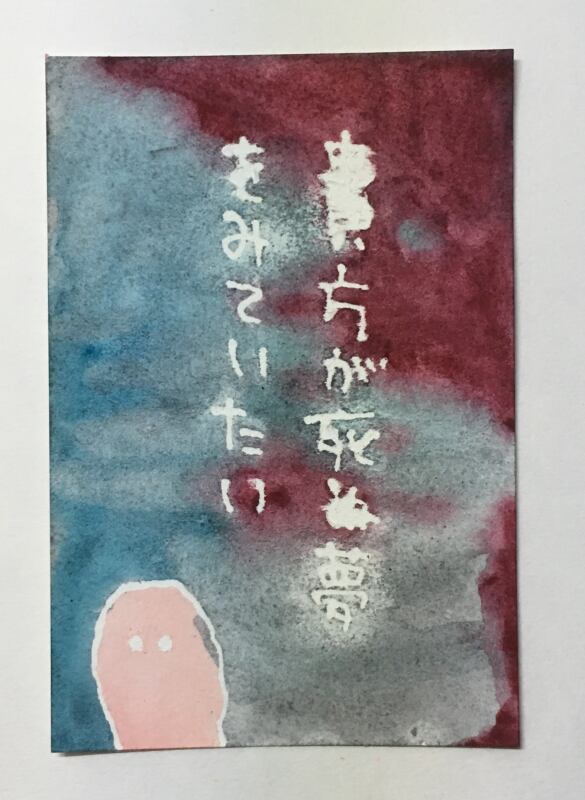 貴方が死ぬ夢
をみていたい